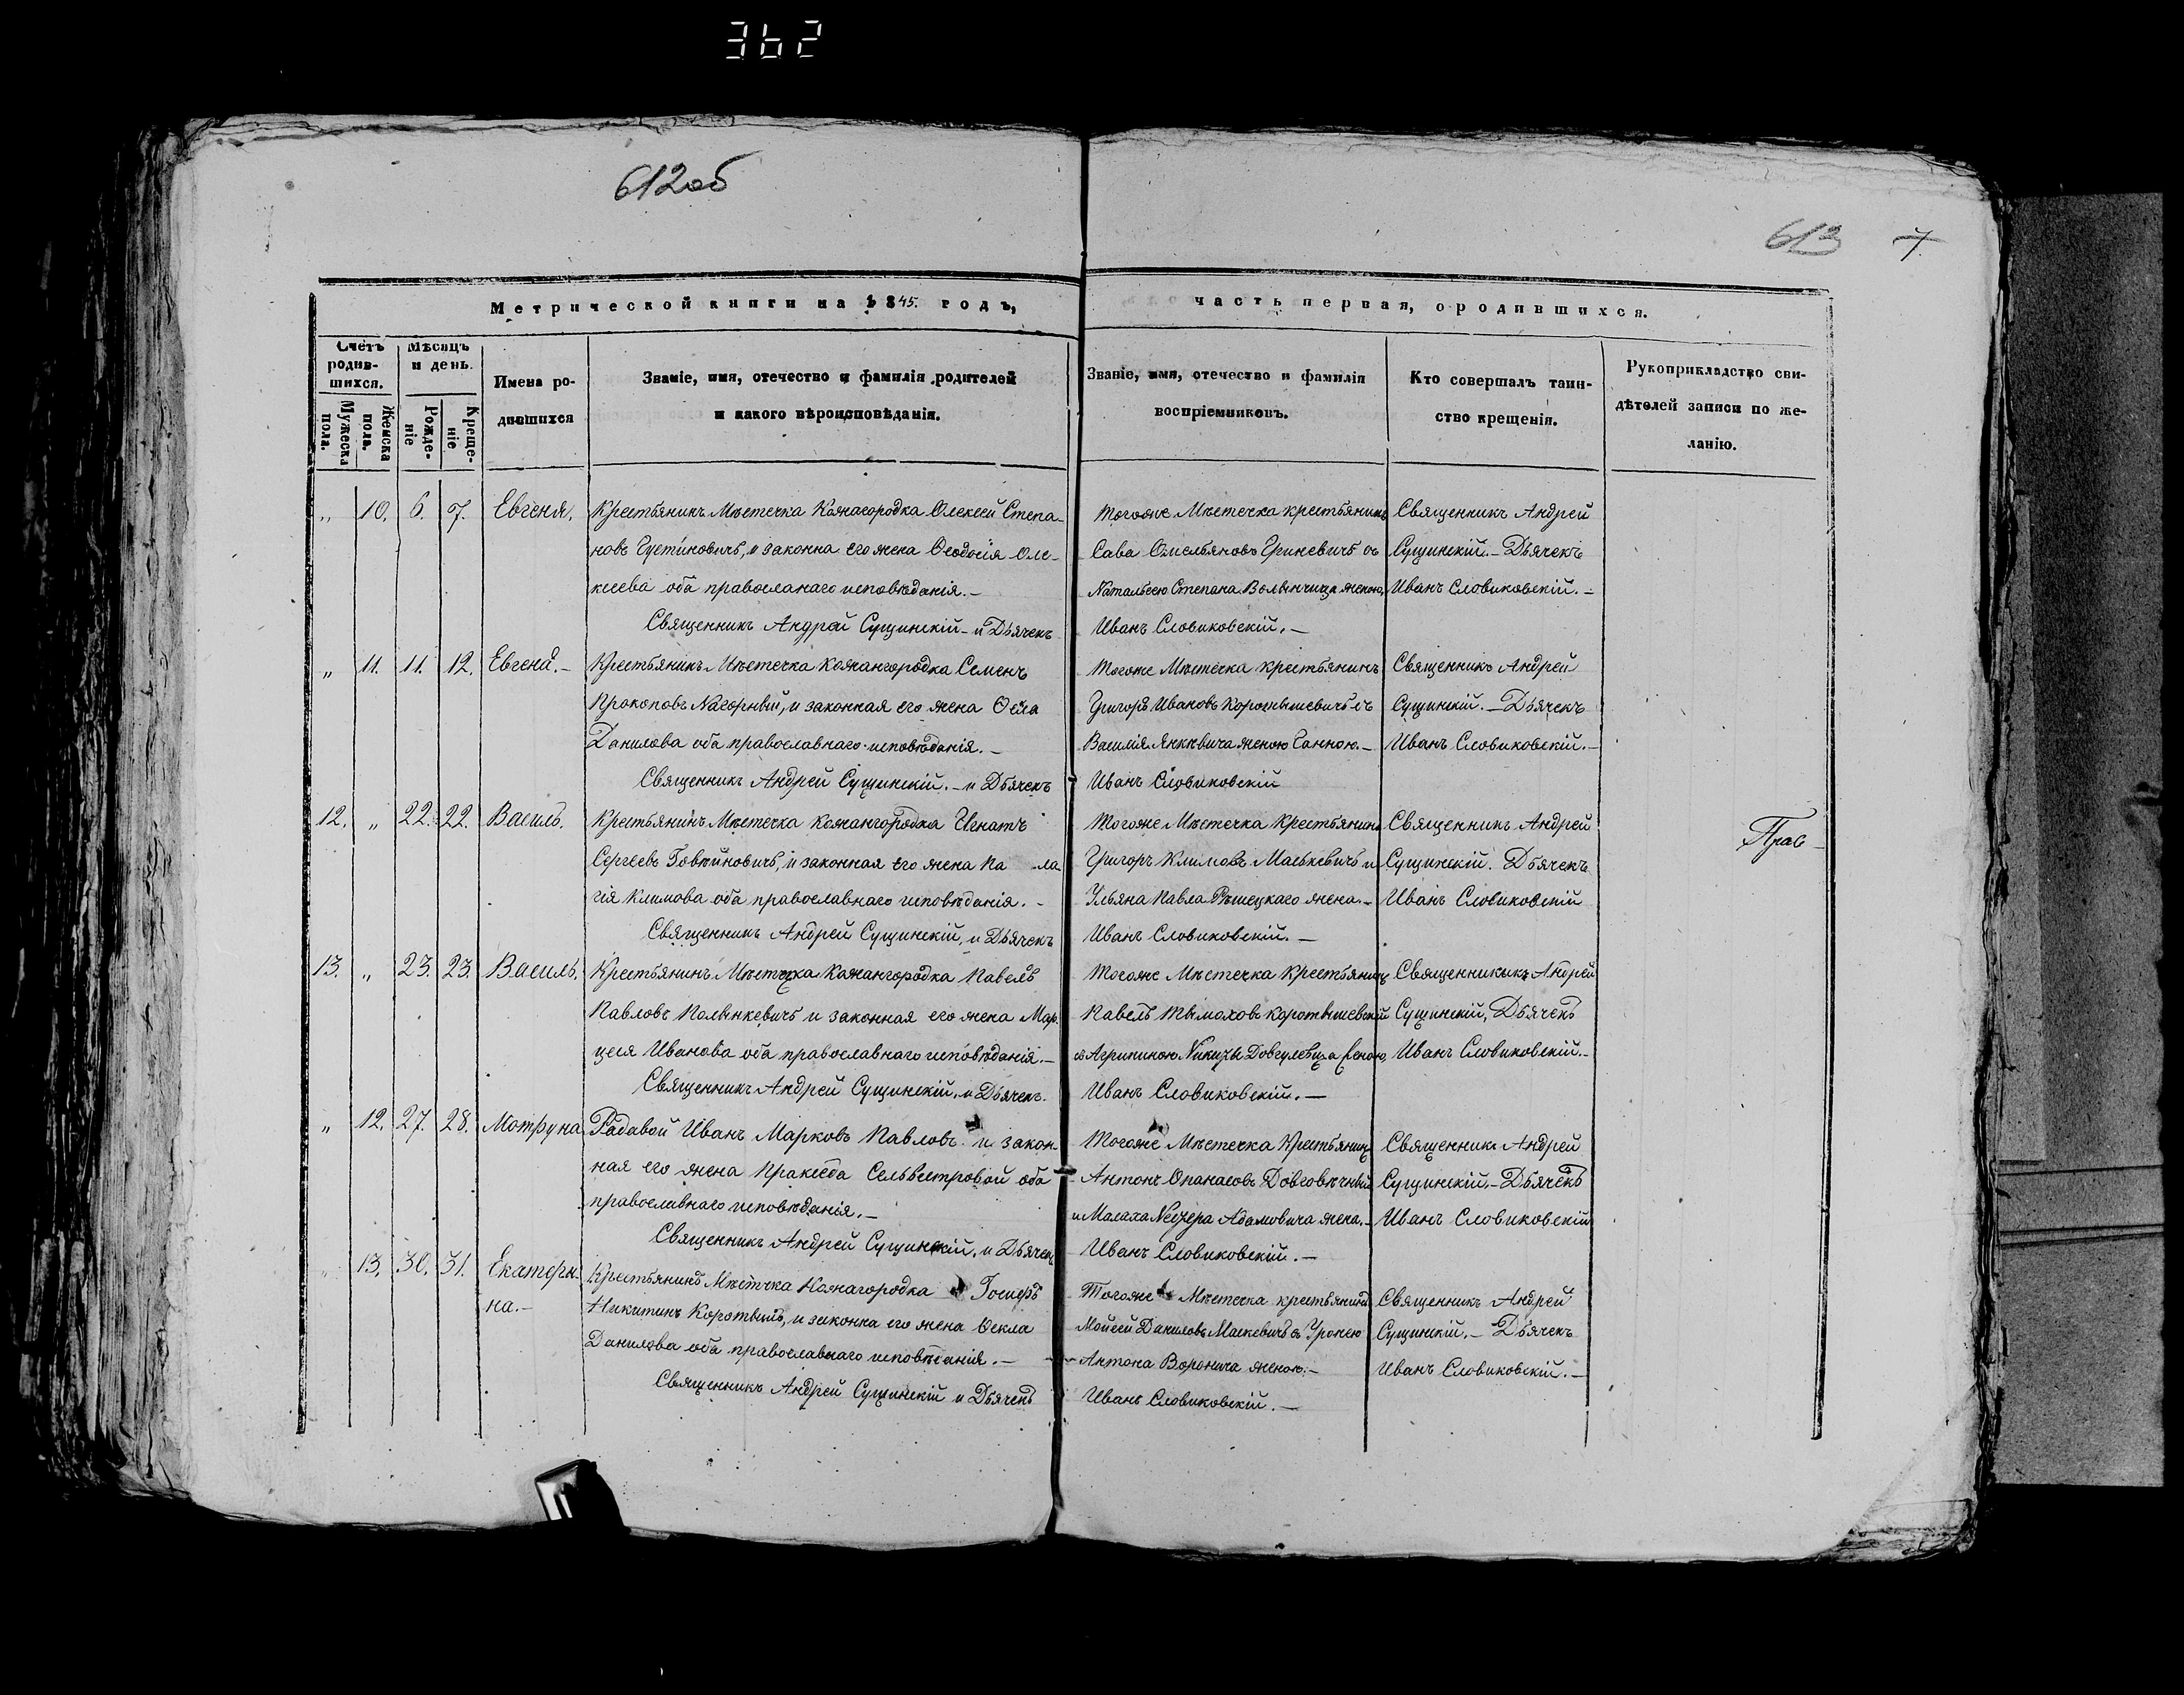 362
612об
613 7.
Метрической книги на 1845. годъ,
часть первая, о родившихся.
Счетъ родив-шихся.
Мужеска пола.
Женска пола.
Мѣсяцъ и день.
Рожде-ніе
Креще-ніе
Имена ро-
дившихся
Званіе, имя, отечество и фамилія родителей
и какого вѣроисповѣданія.
Званіе, имя, отечество и фамилія
воспріемниковъ.
Кто совершалъ таин-
ство крещенія.
Рукоприкладство сви-
дѣтелей записи по же-
ланію.
„ 10. 6. 7. Евгенія.
Крестьянинъ Мѣстечка Кожагородка Олексей Степа-
новъ Густиновичъ, и законна его жена Ѳеодосія Оле-
ксеева оба правосланаго исповѣданія.-
Священникъ Андрей Сущинскій - и Дьячекъ
Тогожне Мѣстечка крестьянинъ
Сава Омельяновъ Гриневичъ съ
Натальею Степана Волынчица женою,
Иванъ Словиковскій.-
Священникъ Андрей
Сущинскій.- Дьячекъ
Иванъ Словиковскій.-
„ 11. 11. 12. Евгена.-
Крестьянинъ Мѣстечка Кожангородка Семенъ
Прокоповъ Нагорный, и законная его жена
Данилова оба православнаго исповѣданія.-
Священникъ Андрей Сущинскій.- и Дьячекъ
Тогоже Мѣстечка крестьянинъ
Григорій Ивановъ Коротышевичъ съ
Василія Янкевича женою Ганною.-
Иванъ Словиковскій
Священникъ Андрей
Сущинскій.- Дьячекъ
Иванъ Словиковскій.-
12. „ 22. 22. Василь.
Крестьянинъ Мѣстечка Кожангородка Игнатъ
Сергеевъ Говѣйновичъ, и законная его жена Па ла
гія Климова оба православнаго исповѣданія.-
Священникъ Андрей Сущинскій, и Дьячекъ
Тогоже Мѣстечка Крестьянинъ
Григоръ Климовъ Маськевичъ и
Ульяна Павла Рѣшецкаго жена.-
Иванъ Словиковскій.-
Священникъ Андрей
Сущинскій. Дьячекъ
Иванъ Словиковскій
Прав-
13. „ 23. 23. Василь.
Крестьянинъ Мѣстечка Кожангородка Павелъ
Павловъ Полынкевичъ и законная его жена Мар-
целя Иванова оба православнаго исповѣданія.-
Священникъ Андрей Сущинскій, и Дьячекъ.
Тогоже Мѣстечка Крестьянинъ
Павелъ Тымоховъ Коротышевскій
съ Агрипиною Никиты Довгулевица женою,
Иванъ Словиковскій.-
Священникикъ Андрей
Сущинскій, Дьячекъ
Иванъ Словиковскій.-
„ 12. 27. 28. Мотруна
Радавой Иванъ Марковъ Павловъ и закон-
ная его жена Пракседа Сельвестровой оба
православнаго исповѣданія.-
Священникъ Андрей Сущинскій, и Дьячекъ
Тогоже Мѣстечка Крестьянинъ
Антонъ Опанасовъ Довговѣчный
и Малаха Адамовича жена.-
Иванъ Словиковскій.-
Священникъ Андрей
Сущинскій.- Дьячекъ
Иванъ Словиковскій
„ 13. 30. 31. Екатери-
на.-
Крестьянинъ Мѣстечка Кожагородка Іосифъ
Никитинъ Коротышъ, и законна его жена Ѳекла
Данилова оба православнаго исповѣданія.-
Священникъ Андрей Сущинскій и Дьячекъ
Тогоже Мѣстечка крестьянинъ
Мойсей Даниловъ Маскевичъ съ
Антона Воронича женою.-
Иванъ Словиковскій.-
Священникъ Андрей
Сущинскій.- Дьячекъ
Иванъ Словиковскій.-